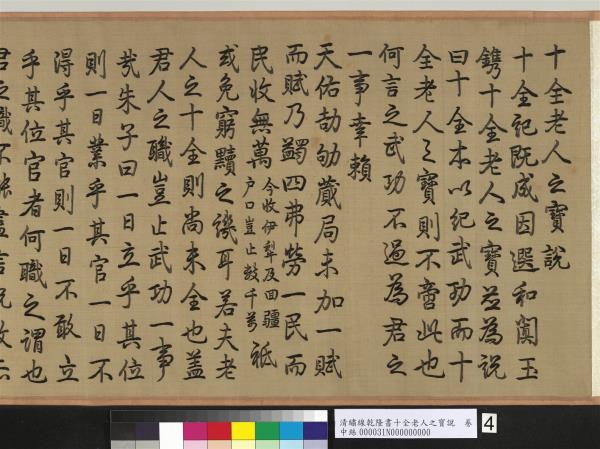 十全老人之寶說
十全記既成因選和闐玉
鐫十全老人之寶並為說
曰十全本以紀武功而十
全老人之寶則不啻此也
何言之武功不過為君之
一事幸賴
天佑劼劬蕆局未加一賦
而賦乃蠲四弗勞一民而
民收無萬
今收伊犁及回疆
户口豈止數千萬
祗
或免窮黷之譏耳若夫老
人之十全則尚未全也蓋
君人之職豈止武功一事
哉朱子曰一日立乎其位
則一日業乎其官一日不
得乎其官則一日不敢立
乎其位官者何職之謂也
君之職不
清繡線乾隆書十全老人之寶說 卷
中絲 000031N000000000
4